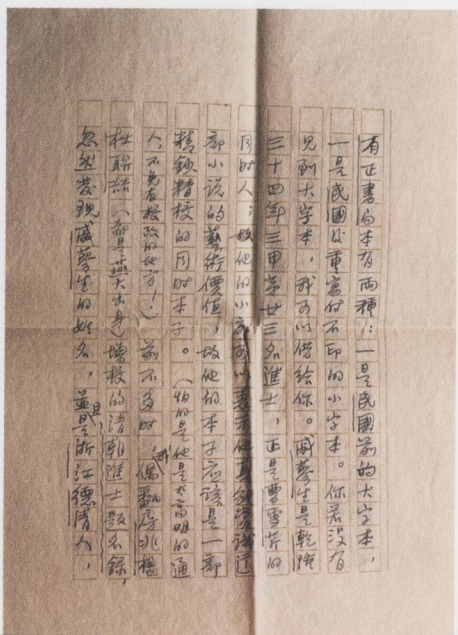 有正書局本有兩種：一是民國前的大字本，
一是民國後重寫付石印的小字本。你若沒有
見到大字本，我可以借給你。戚蓼生是乾隆
三十四年三甲第廿三名進士，正是曹雪芹的
同時人，故他的小序可以表示他真能賞識這
部小說的藝術價值，故他的本子應該是一部
精鈔精校的同時本子。（怕的是他是太高明的通
人，不免有校改的地方！）前不多時，我偶翻房兆楹
杜聯喆（都是燕大出身）增校的清朝進士題名錄，
忽然發現戚蓼生的姓名，並且是浙江德清人，